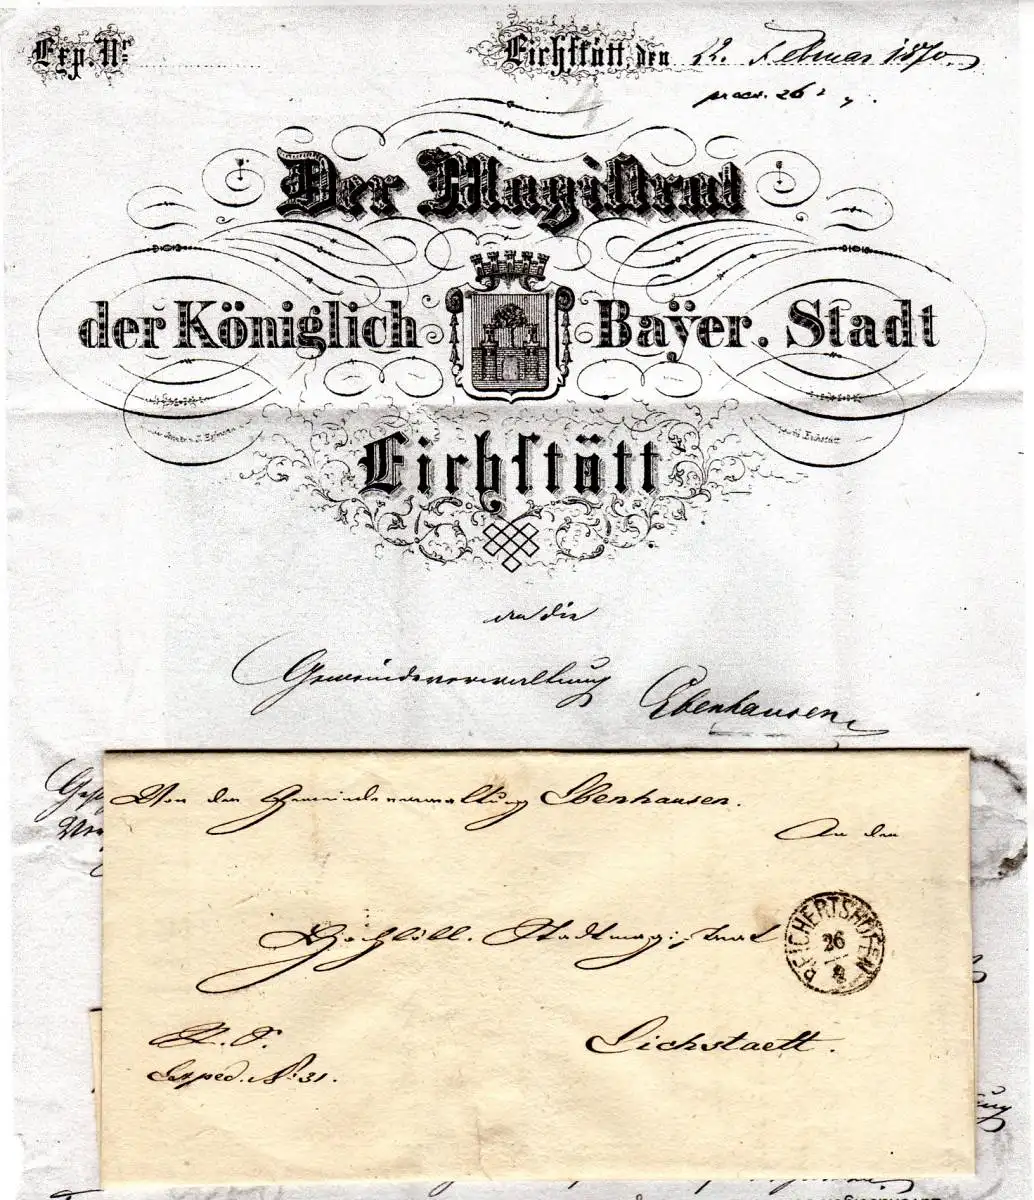 Exp. Nr
Eichstätt, den 22. Februar 1870.
praes. 26
Der Magistrat
der Königlich Bayer. Stadt
Eichstätt
An die
Gemeindeverwaltung Ebenhausen
Von der Gemeindeverwaltung Ebenhausen.
An den
Hochlöbl. Stadtmagistrat
REICHERTSHOFEN
26
2
Eichstaett.
R. S.
Exped. No. 31.